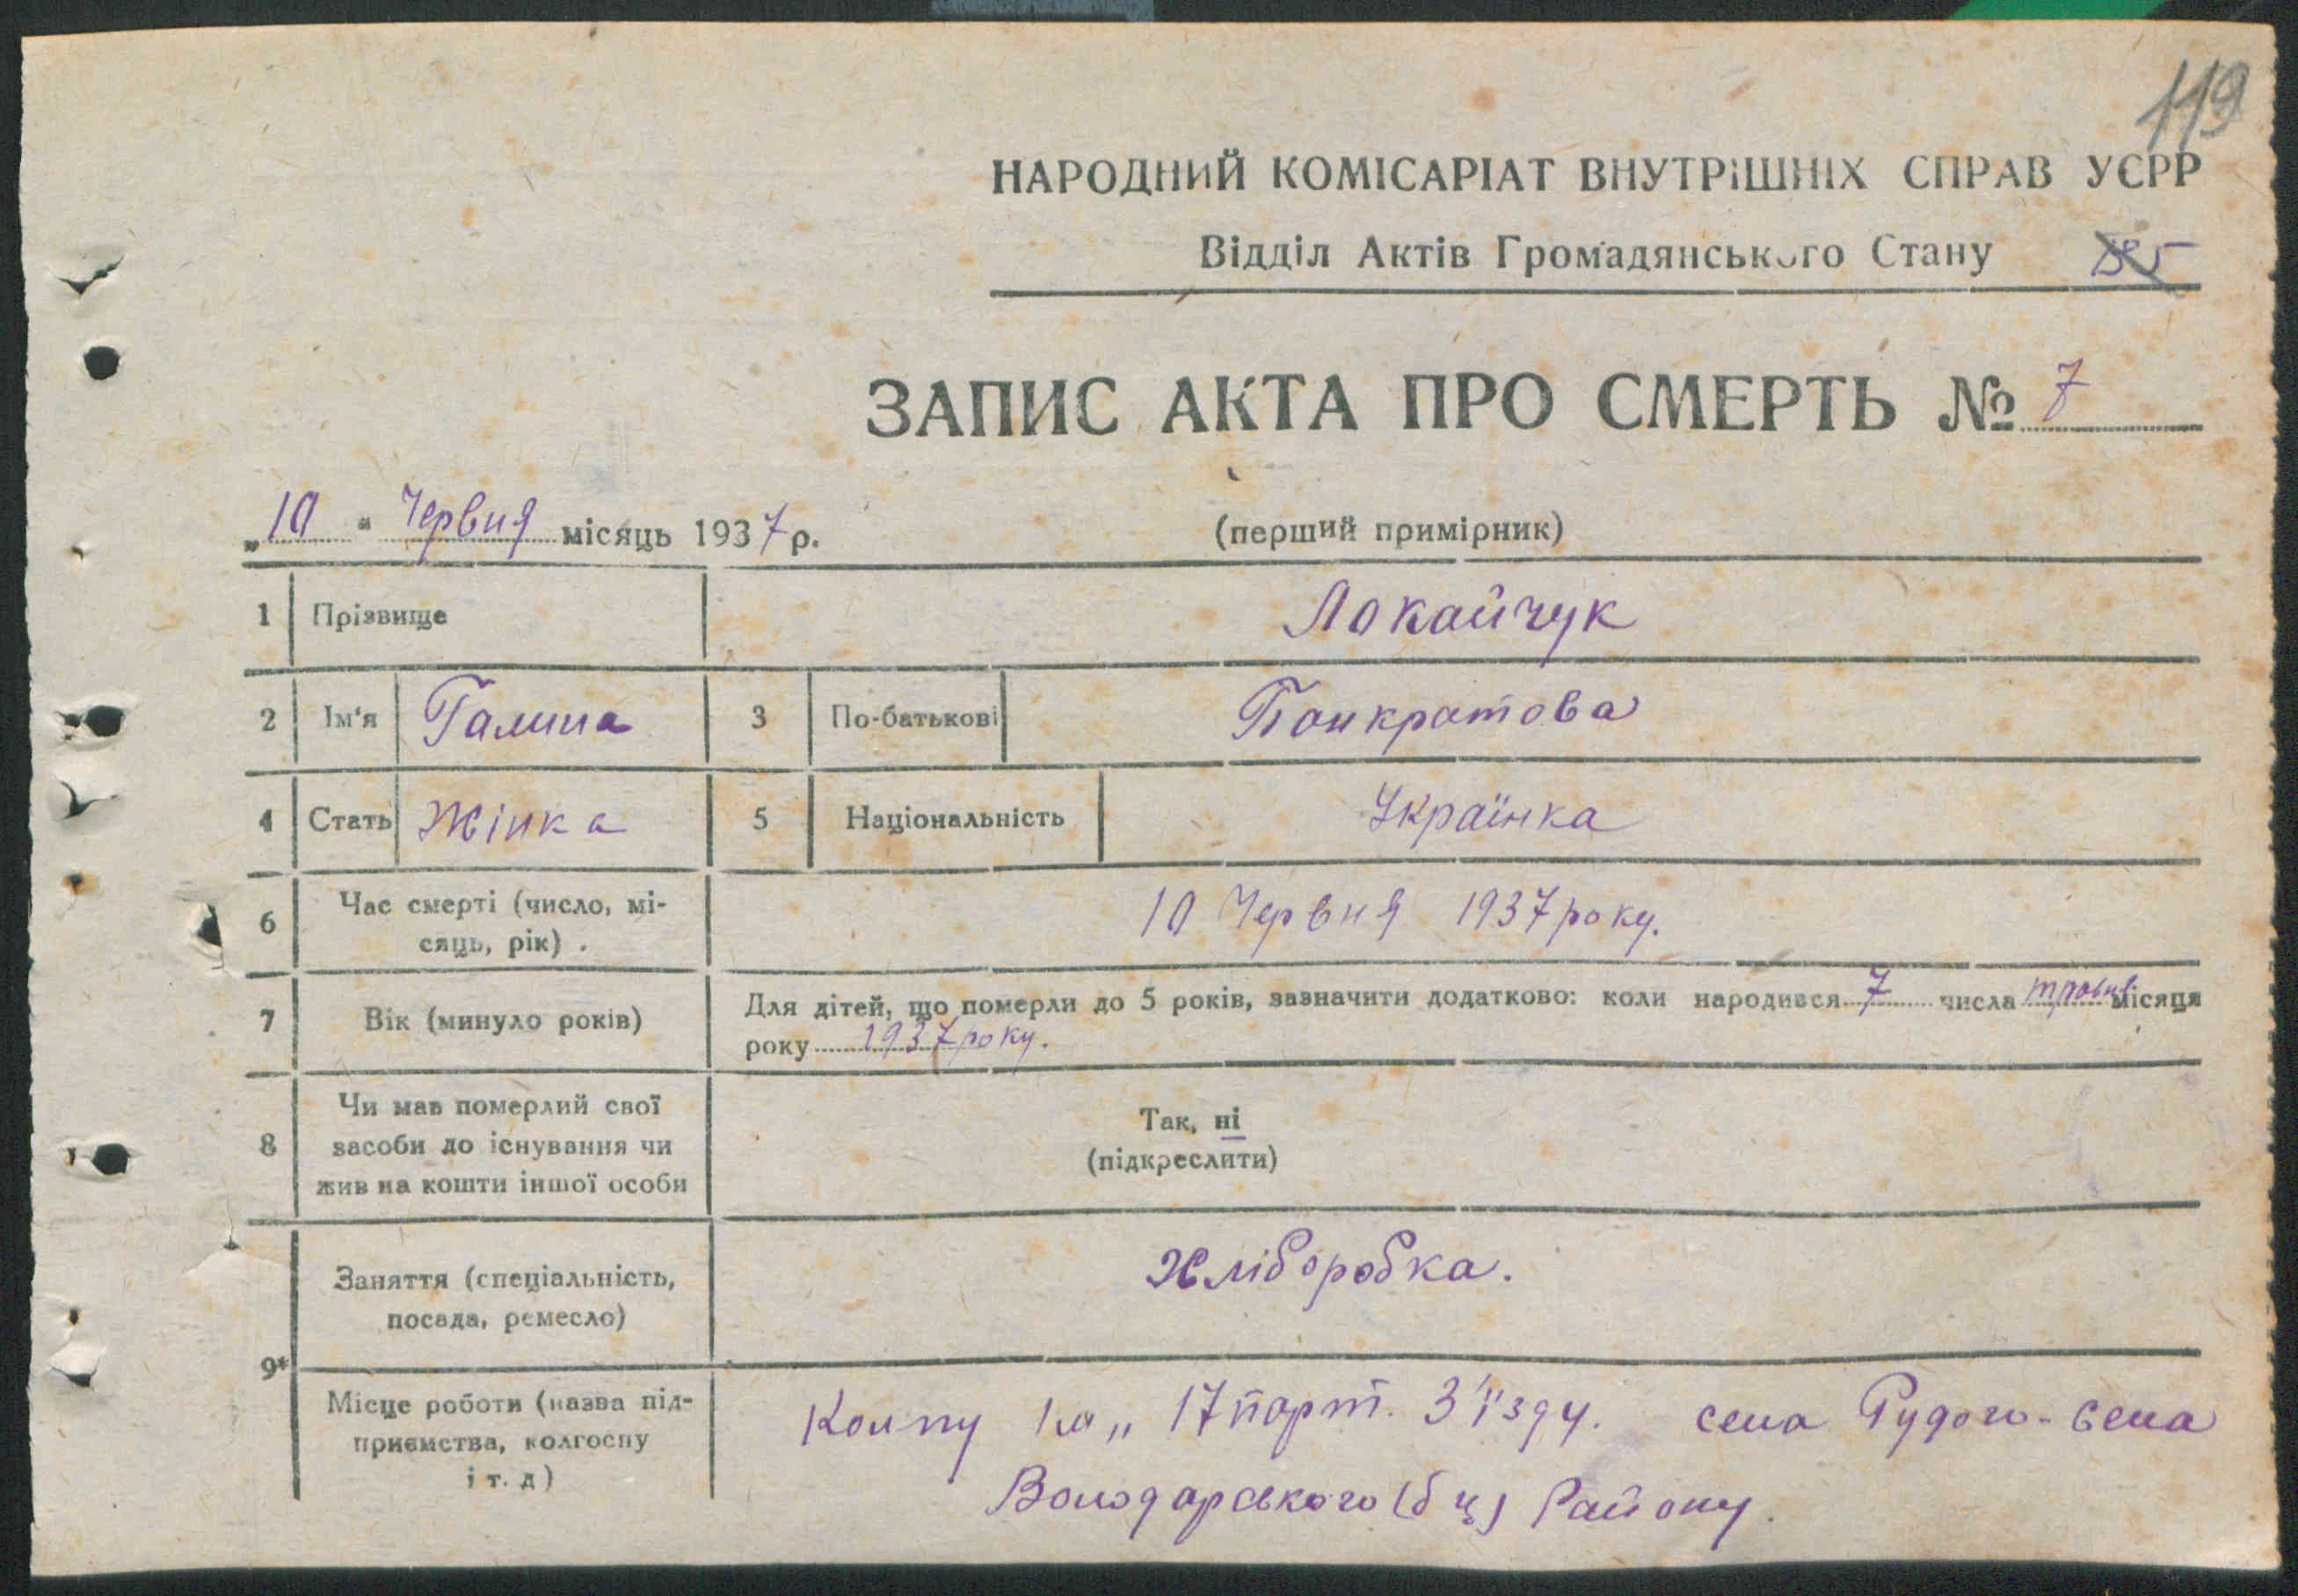 119
НАРОДНИЙ КОМІСАРІАТ ВНУТРІШНІХ СПРАВ УСРР
Відділ Актів Громадянського Стану
ЗАПИС АКТА ПРО СМЕРТЬ № 7
„10" Червня місяць 1937 р.
(перший примірник)
1 Прізвище Локайчук
2 Ім'я Галина 3 По-батькові Понкротова
4 Стать Жінка 5 Національність Українка
6 Час смерті (число, мі-
сяць, рік). 10 Червня 1937 року.
7 Вік (минуло років) Для дітей, що померли до 5 років, зазначити додатково: коли народився 7 числа травня місяця
року 1937 року.
8 Чи мав померлий свої
засоби до існування чи
жив на кошти іншої особи
Так, ні
(підкреслити)
9* Заняття (спеціальність,
посада, ремесло)
Хліборобка.
Місце роботи (назва під-
приємства, колгоспу
і т. д)
17 парт. З'їзду. села Рудого-Села
Володарського (бц) Району.